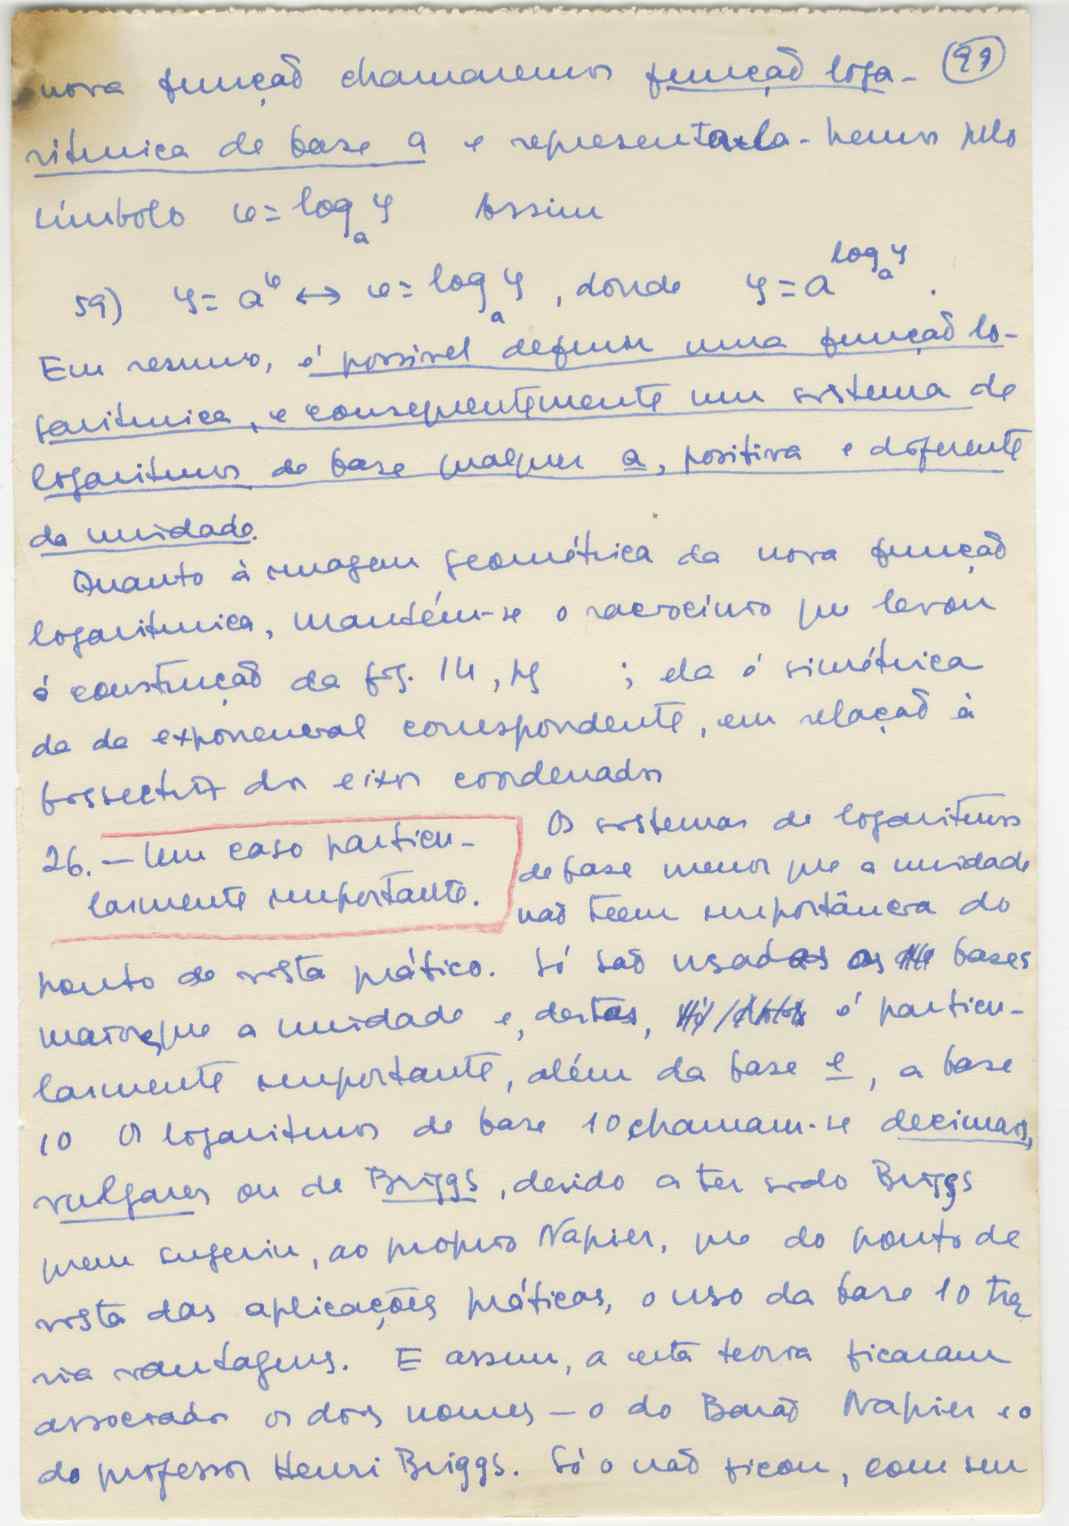 nova função chamaremos função loga- (99)
rítmica de base a e representá-la-hemos pelo
símbolo x = log_a y Assim
59) y = a^x ↔ x = log_a y , donde y = a^{log_a y} .
Em resumo, é possível definir uma função lo-
garítmica, e consequentemente um sistema de
logaritmos de base qualquer a, positiva e diferente
da unidade.
Quanto à imagem geométrica da nova função
logarítmica, mantém-se o raciocínio que levou
à construção da fig. 14, pg ; ela é simétrica
da da exponencial correspondente, em relação à
bissectriz dos eixos coordenados
26. — Um caso particu-
larmente importante.
Os sistemas de logaritmos
de base menor que a unidade
não teem importância do
ponto de vista prático. Só são usadas as bases
maiores que a unidade e, destas, é particu-
larmente importante, além da base e, a base
10 Os logaritmos de base 10 chamam-se decimais,
vulgares ou de Briggs, devido a ter sido Briggs
quem sugeriu, ao próprio Napier, que do ponto de
vista das aplicações práticas, o uso da base 10 tra
ria vantagens. E assim, a esta teoria ficaram
associados os dois nomes — o do Barão Napier e o
do professor Henri Briggs. Só o não ficou, com seu